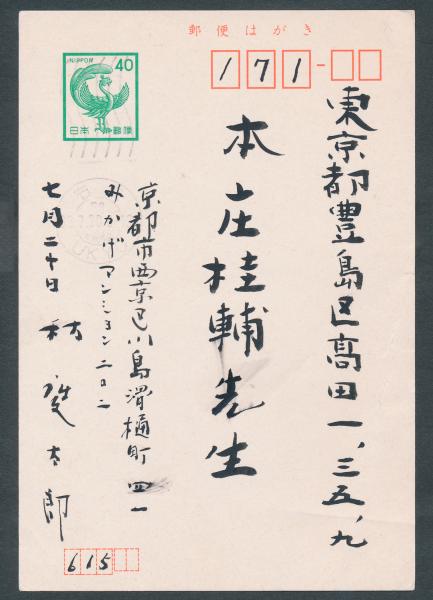 郵便はがき
NIPPON
40
日本郵便
171-
東京都豊島区高田一、三五、九
本庄桂輔先生
京都市西京区川島滑樋町四一
みかげマンション二〇二
七月二十日
林
太郎
615